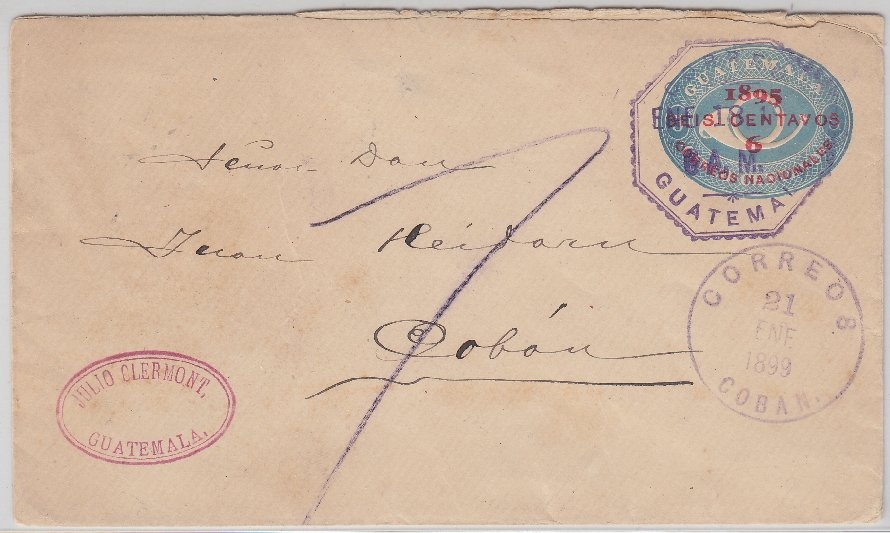 GUATEMALA
1895
SEIS CENTAVOS
6
CORREOS NACIONALES
ENE 18
A.M.
GUATEMALA
Señor Don
Juan Heidorn
Cobán
CORREOS
21
ENE
1899
COBAN.
JULIO CLERMONT.
GUATEMALA.